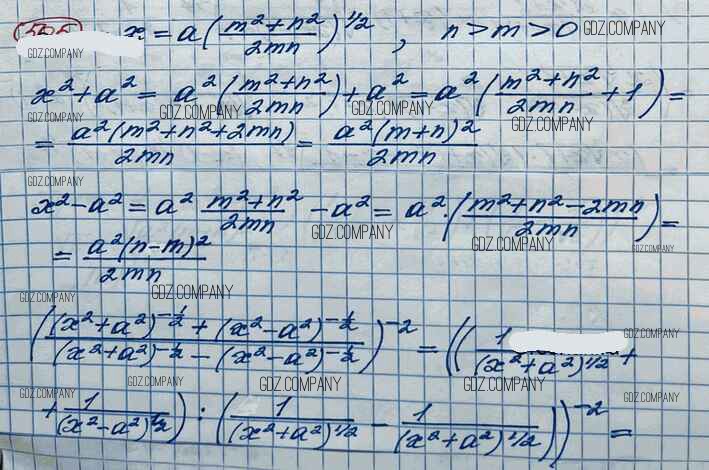 555 x = a(\frac{m²+n²}{2mn})^{1/2}, n > m > 0 GDZ.COMPANY
GDZ.COMPANY
x²+a² = a²(\frac{m²+n²}{2mn})+a² = a²(\frac{m²+n²}{2mn}+1) =
GDZ.COMPANY GDZ.COMPANY GDZ.COMPANY GDZ.COMPANY
= \frac{a²(m²+n²+2mn)}{2mn} = \frac{a²(m+n)²}{2mn}
GDZ.COMPANY
x²-a² = a² \frac{m²+n²}{2mn} -a² = a²·(\frac{m²+n²-2mn}{2mn}) =
GDZ.COMPANY GDZ.COMPANY GDZ.COMPANY
= \frac{a²(n-m)²}{2mn}
GDZ.COMPANY GDZ.COMPANY
(\frac{(x²+a²)^{-\frac{1}{2}} + (x²-a²)^{-\frac{1}{2}}}{(x²+a²)^{-\frac{1}{2}} - (x²-a²)^{-\frac{1}{2}}})^{-2} = ((\frac{1}{(x²+a²)^{1/2}} +
GDZ.COMPANY
GDZ.COMPANY GDZ.COMPANY GDZ.COMPANY GDZ.COMPANY
+ \frac{1}{(x²-a²)^{1/2}}) : (\frac{1}{(x²+a²)^{1/2}} - \frac{1}{(x²+a²)^{1/2}}))^{-2} =